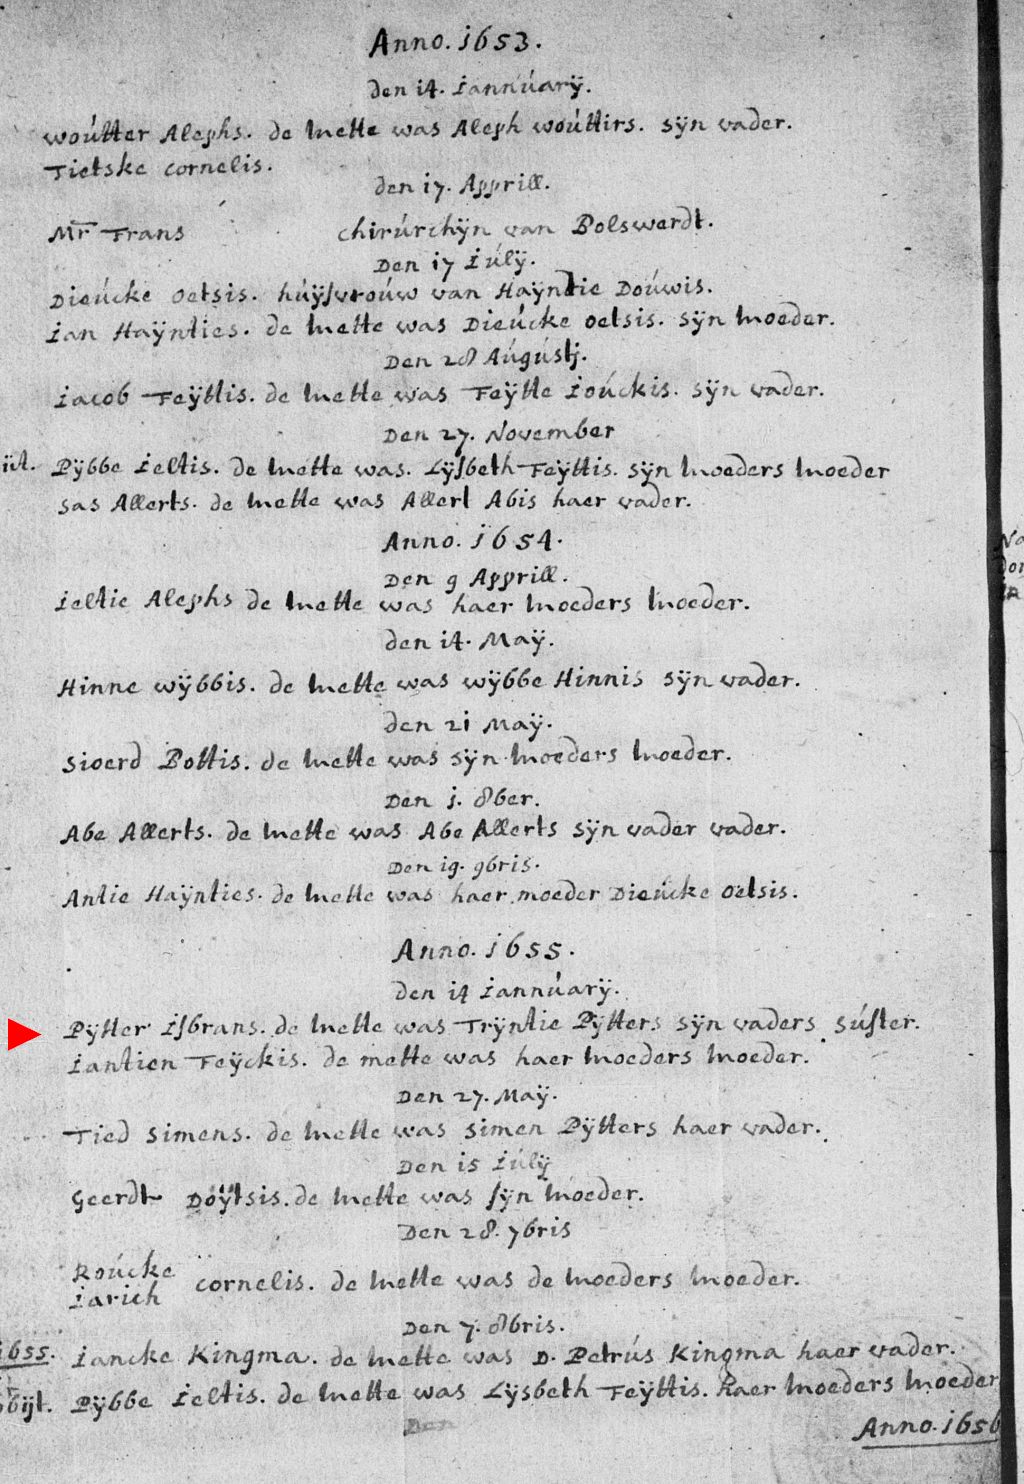 Anno. 1653.
den 14. Iannúarÿ.
woútter Alephs. de mette was Aleph woúttirs. sÿn vader.
Tietske cornelis.
den 17. Apprill.
Mr Frans chirúrchÿn van Bolswerdt.
Den 17 Iúlÿ.
Dieúcke oetsis. húÿsvroúw van Haÿntie Doúwis.
Ian Haÿnties. de mette was Dieúcke oetsis. sÿn moeder.
Den 28 Aúgústj.
Iacob Feÿttis. de mette was Feÿtte Ioúckis. sÿn vader.
Den 27. November
Pÿbbe Ieltis. de mette was. Lÿsbeth Feÿttis. sÿn moeders moeder
sas Allerts. de mette was Allert Abis haer vader.
Anno. 1654.
Den 9 Apprill.
Ieltie Alephs de mette was haer moeders moeder.
den 14. Maÿ.
Hinne wÿbbis. de mette was wÿbbe Hinnis sÿn vader.
den 21 Maÿ.
Sioerd Pottis. de mette was sÿn moeders moeder.
Den 1. 8ber.
Abe Allerts. de mette was Abe Allerts sÿn vader vader.
Den 19. 9bris.
Antie Haÿnties. de mette was haer moeder Dieúcke oetsis.
Anno. 1655.
den 14 Iannúarÿ.
Pÿtter Isbrans. de mette was Trÿntie Pÿtters sÿn vaders súster.
Iantien Feÿckis. de mette was haer moeders moeder.
Den 27. Maÿ.
Tied simens. de mette was simen Pÿtters haer vader.
Den 15 Iúlÿ
Geerdt Doÿtsis. de mette was sÿn moeder.
Den 28. 7bris
Roúcke
Iarich cornelis. de mette was de moeders moeder.
Den 7. 8bris.
1655. Iancke Kingma. de mette was D. Petrús Kingma haer vader.
Pÿbbe Ieltis. de mette was Lÿsbeth Feÿttis. haer moeders moeder
Den
Anno. 1656